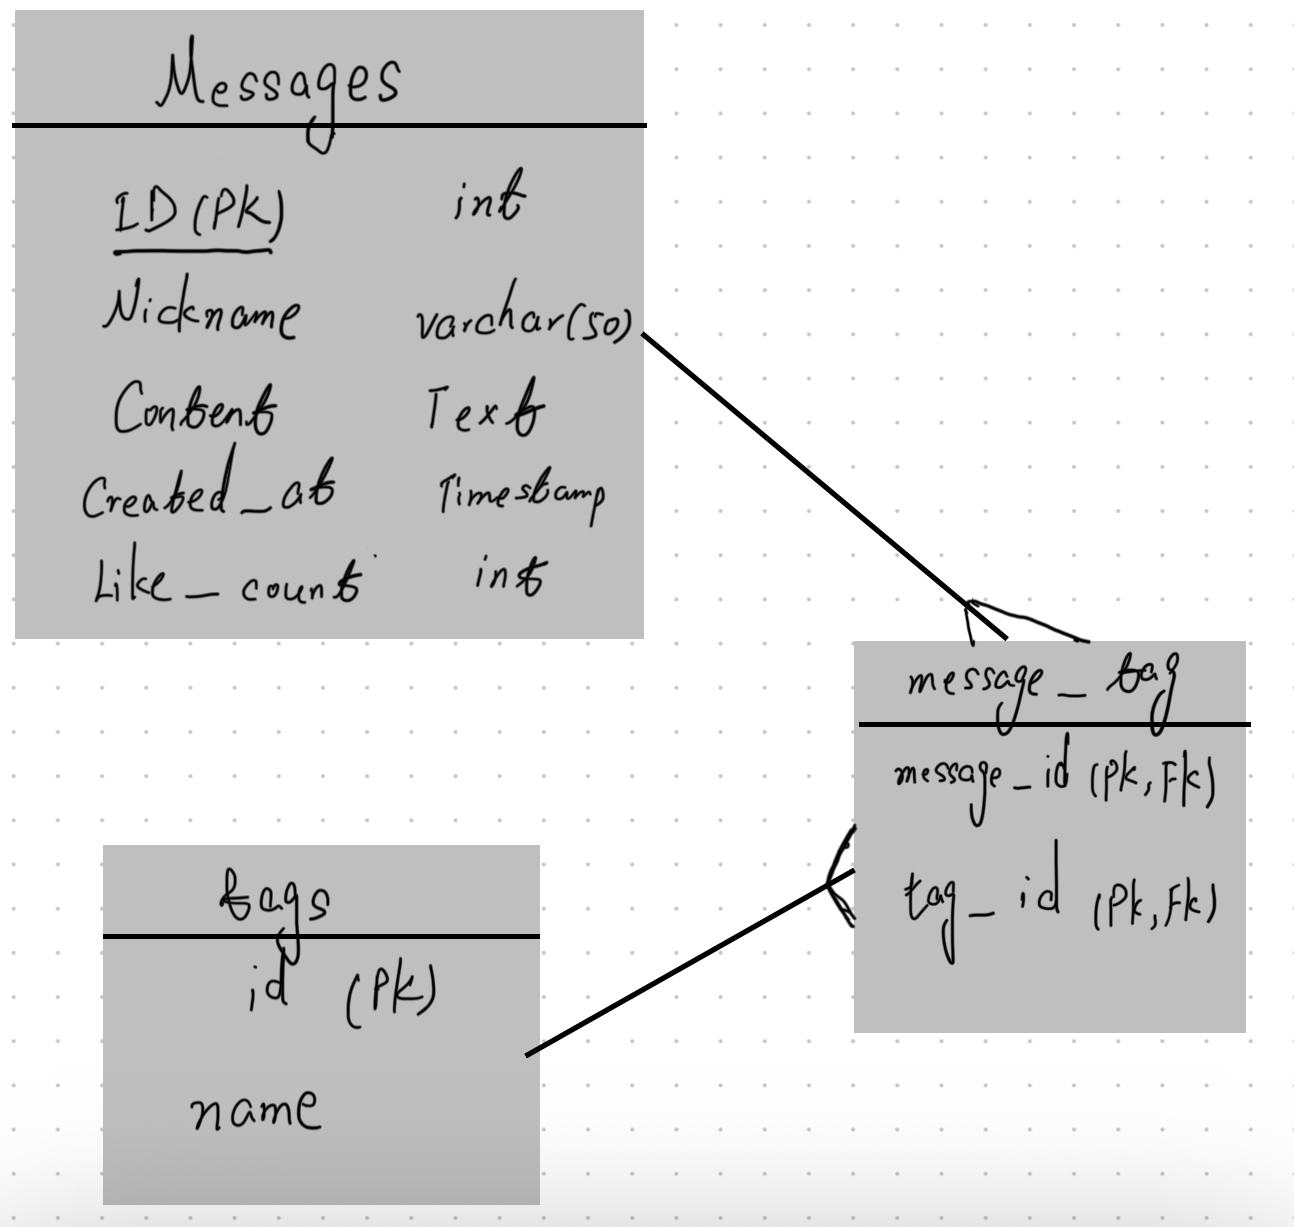 Messages
ID (PK) int
Nickname varchar(50)
Content Text
Created_at Timestamp
Like_count int
message_tag
message_id (Pk, Fk)
tag_id (Pk, Fk)
tags
id (Pk)
name